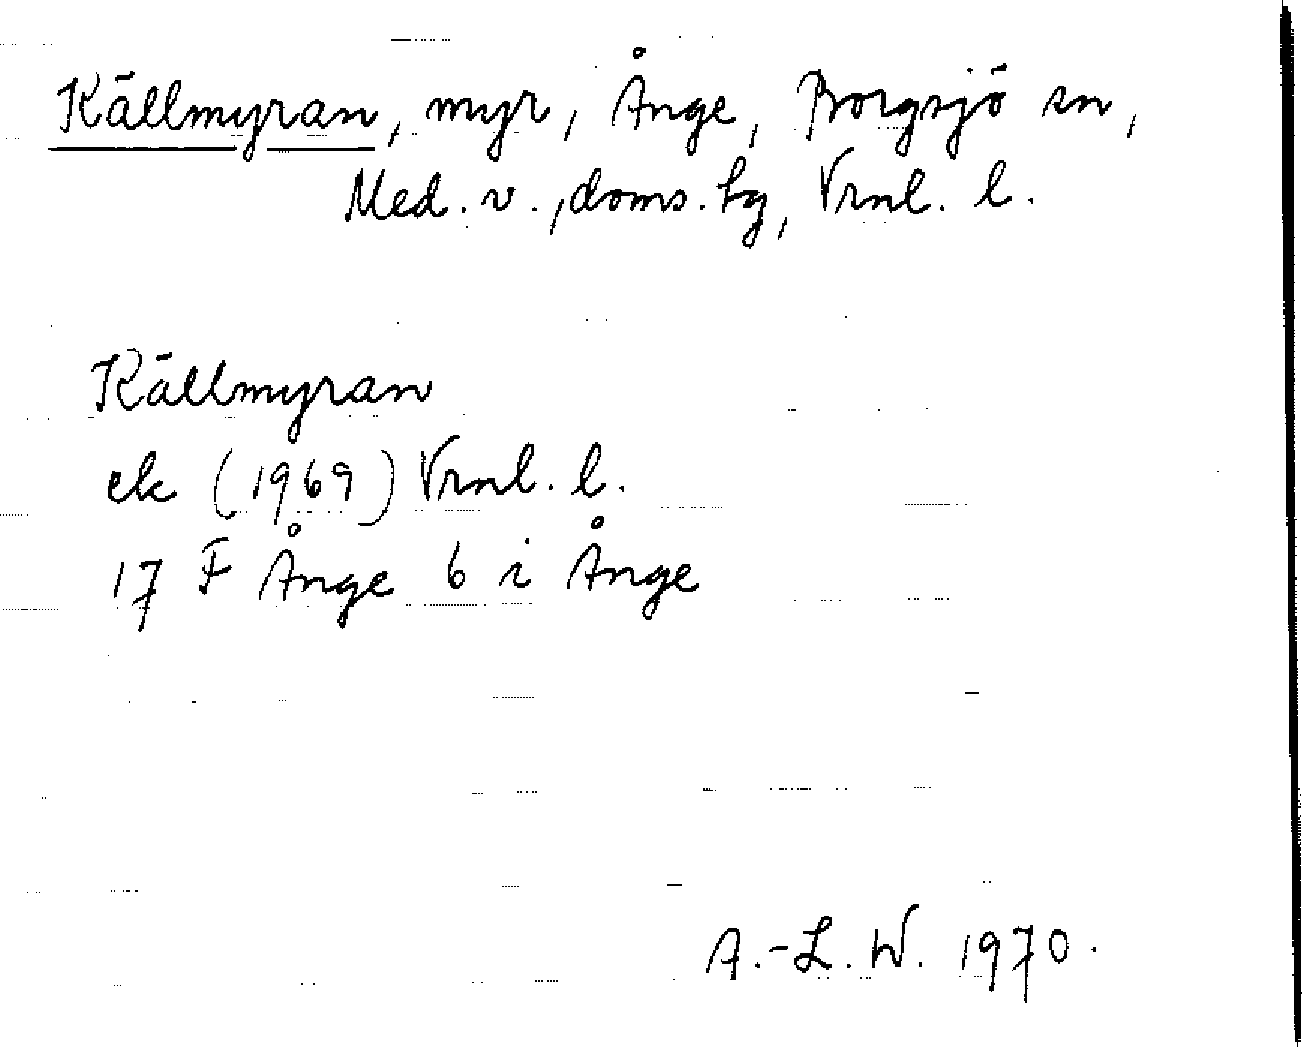 Källmyran, myr, Ånge, Borgsjö sn,
Med. v., doms. hg, Vrnl. l.
Källmyran
ek (1969) Vrnl. l.
17 F Ånge 6 i Ånge
A.-L. W. 1970.